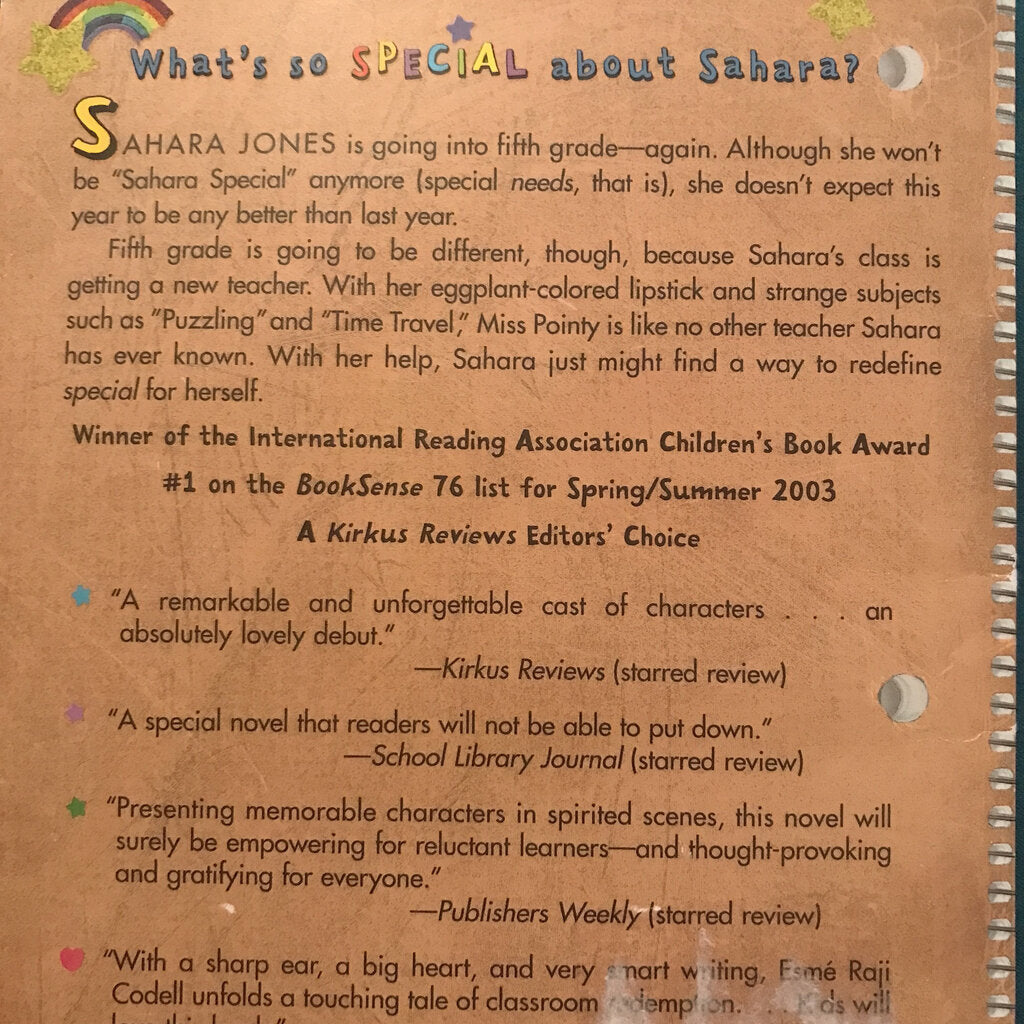 What's so SPECIAL about Sahara?
SAHARA JONES is going into fifth grade—again. Although she won't
be "Sahara Special" anymore (special needs, that is), she doesn't expect this
year to be any better than last year.
Fifth grade is going to be different, though, because Sahara's class is
getting a new teacher. With her eggplant-colored lipstick and strange subjects
such as "Puzzling" and "Time Travel," Miss Pointy is like no other teacher Sahara
has ever known. With her help, Sahara just might find a way to redefine
special for herself.
Winner of the International Reading Association Children's Book Award
#1 on the BookSense 76 list for Spring/Summer 2003
A Kirkus Reviews Editors' Choice
"A remarkable and unforgettable cast of characters . . . an
absolutely lovely debut."
—Kirkus Reviews (starred review)
"A special novel that readers will not be able to put down."
—School Library Journal (starred review)
"Presenting memorable characters in spirited scenes, this novel will
surely be empowering for reluctant learners—and thought-provoking
and gratifying for everyone."
—Publishers Weekly (starred review)
"With a sharp ear, a big heart, and very smart writing, Esmé Raji
Codell unfolds a touching tale of classroom redemption. . . . Kids will